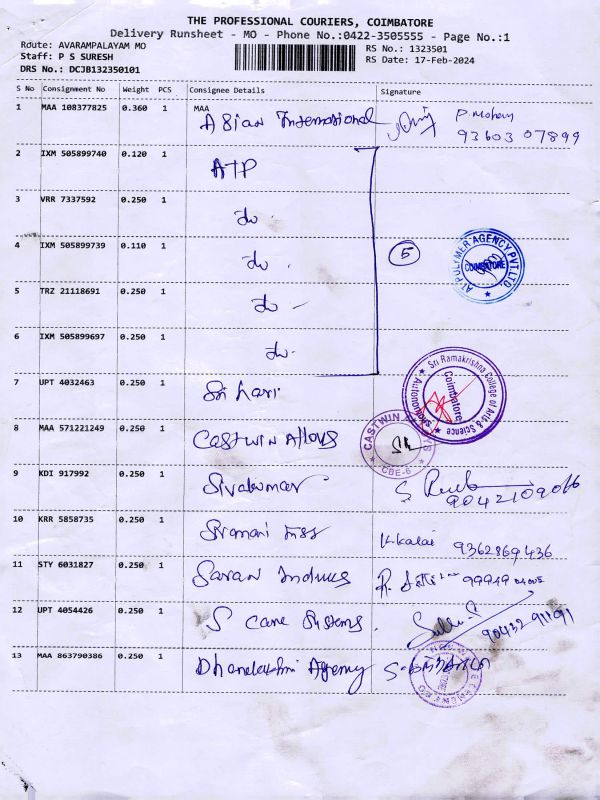 THE PROFESSIONAL COURIERS, COIMBATORE
Delivery Runsheet - MO - Phone No.:0422-3505555 - Page No.:1
Route: AVARAMPALAYAM MO
Staff: P S SURESH
DRS No.: DCJB132350101
RS No.: 1323501
RS Date: 17-Feb-2024
S No Consignment No Weight PCS Consignee Details Signature
1 MAA 108377825 0.360 1 MAA
Asian International P. Mohan
93603 07899
2 IXM 505899740 0.120 1 ATP
3 VRR 7337592 0.250 1
4 IXM 505899739 0.110 1
5
AT POLYMER AGENCY PVT.LTD
COIMBATORE
5 TRZ 21118691 0.250 1
6 IXM 505899697 0.250 1
7 UPT 4032463 0.250 1 Sri hari
Sri Ramakrishna College of Arts & Science
Autonomous
Coimbatore
8 MAA 571221249 0.250 1 Castwin Alloys
CASTWIN ALLOYS
CBE-6
9 KDI 917992 0.250 1 Sivakumar
10 KRR 5858735 0.250 1 K.Kalai 9362869436
11 STY 6031827 0.250 1 Saran
12 UPT 4054426 0.250 1 S Care Systems
90432-91191
13 MAA 863790386 0.250 1 Dhanalakshmi Agency